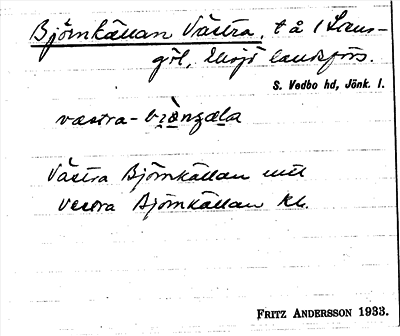 Björnkällan Västra, t å 1 Lrans-
göl, Eksjö landsförs.
S. Vedbo hd, Jönk. l.
västra-
Västra Björnkällan uttl
Vestra Björnkällan kh.
FRITZ ANDERSSON 1933.